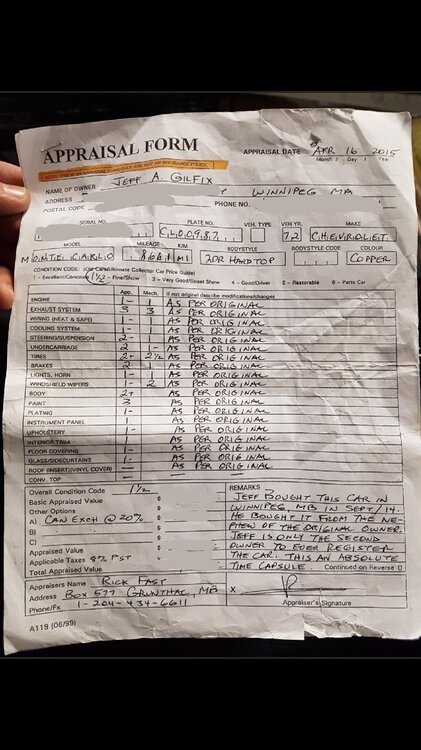 APPRAISAL FORM
NOTE: THIS IS AN APPRAISAL FORM ONLY AND NOT AN INSURANCE POLICY.
APPRAISAL DATE APR 16 2015
Month / Day / Year
NAME OF OWNER JEFF A. GILFIX
ADDRESS WINNIPEG MA
POSTAL CODE PHONE NO.
SERIAL NO. PLATE NO. VEH. TYPE VEH YR. MAKE
72 CHEVROLET
MODEL MILEAGE K/M BODYSTYLE BODYSTYLE CODE COLOUR
MONTE CARLO 8681 MI 2DR HARDTOP COPPER
CONDITION CODE: (Ultimate Collector Car Price Guide)
1 - Excellent/Concours 1½ - Fine/Show 3 - Very Good/Street Show 4 - Good/Driver 5 - Restorable 6 - Parts Car
App. Mech. If not original describe modifications/changes
ENGINE 1- 1 AS PER ORIGINAL
EXHAUST SYSTEM 3 3 AS PER ORIGINAL
WIRING (NEAT & SAFE) 1 1 AS PER ORIGINAL
COOLING SYSTEM 1- 1 AS PER ORIGINAL
STEERING/SUSPENSION 2- 1 AS PER ORIGINAL
UNDERCARRIAGE 2 1- AS PER ORIGINAL
TIRES 2+ 2½ AS PER ORIGINAL
BRAKES 2 1 AS PER ORIGINAL
LIGHTS, HORN 1- AS PER ORIGINAL
WINDSHIELD WIPERS 1- 2 AS PER ORIGINAL
BODY 2+ AS PER ORIGINAL
PAINT 3 AS PER ORIGINAL
PLATING 1- AS PER ORIGINAL
INSTRUMENT PANEL 1- AS PER ORIGINAL
UPHOLSTERY 1- AS PER ORIGINAL
INTERIOR TRIM 1- AS PER ORIGINAL
FLOOR COVERING 1- AS PER ORIGINAL
GLASS/SIDECURTAINS 1- AS PER ORIGINAL
ROOF (INSERT)(VINYL COVER) —
CONV. TOP — —
Overall Condition Code 1½
Basic Appraised Value $
Other Options $
A) CAN EXCH @ 20% $
B) $
C) $
Appraised Value $
Applicable Taxes 8% PST $
Total Appraised Value $
REMARKS
JEFF BOUGHT THIS CAR IN
WINNIPEG, MB IN SEPT/14.
HE BOUGHT IT FROM THE NE-
PHEW OF THE ORIGINAL OWNER.
JEFF IS ONLY THE SECOND
OWNER TO EVER REGISTER
THE CAR. THIS AN ABSOLUTE
TIME CAPSULE. Continued on Reverse
Appraisers Name RICK FAST
Address BOX 577 GRUNTHAL, MB
Phone/Fx 1-204-434-6611
X
Appraiser's Signature
A119 (06/99)